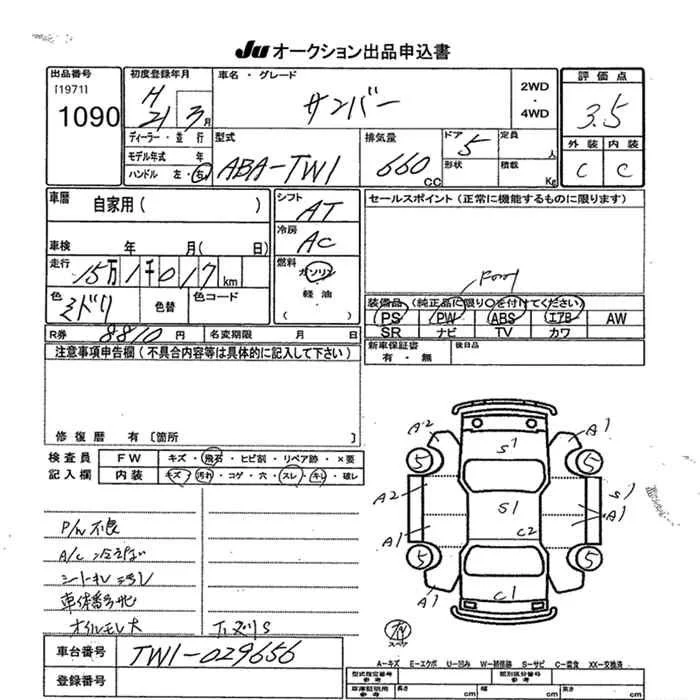 Ju オークション出品申込書
出品番号
[1971]
1090
初度登録年月
H
21 3月
車名・グレード
サンバー
2WD
・
4WD
評価点
3.5
外装 内装
C C
ディーラー・並行
モデル年式 年
ハンドル 左・右
型式
ABA-TW1
排気量
660
CC
ドア
5
形状
定員
人
積載
Kg
車歴
自家用( )
車検 年 月( 日)
走行
15万1千017km
色
ミドリ
色替
色コード
シフト
AT
冷房
AC
燃料
ガソリン
・
軽油
( )
セールスポイント(正常に機能するものに限ります)
装備品(純正品に限り○を付けてください)
PS PW ABS エアB AW
SR ナビ TV カワ
R券 8810円
名変期限 月 日
新車保証書
有・無
後日品
注意事項申告欄(不具合内容等は具体的に記入して下さい)
修復歴 有〔箇所 〕
検査員
記入欄
FW キズ・飛石・ヒビ割・リペア跡・×要
内装 キズ・汚れ・コゲ・穴・スレ・キレ・破レ
P/W不良
A/C冷えない
車体番号
オイルモレ大
A2 S1 A1
5 5
A2 S1 S1
A1 C2 A1
5 5
A1 C1
車台番号
TW1-029656
登録番号
A-キズ E-エクボ U-凹み W-補修跡 S-サビ C-腐食 XX-交換済
型式指定番号
参考
類別区分番号
参考
車庫証明用
参考
長さ cm 幅 cm 高さ cm